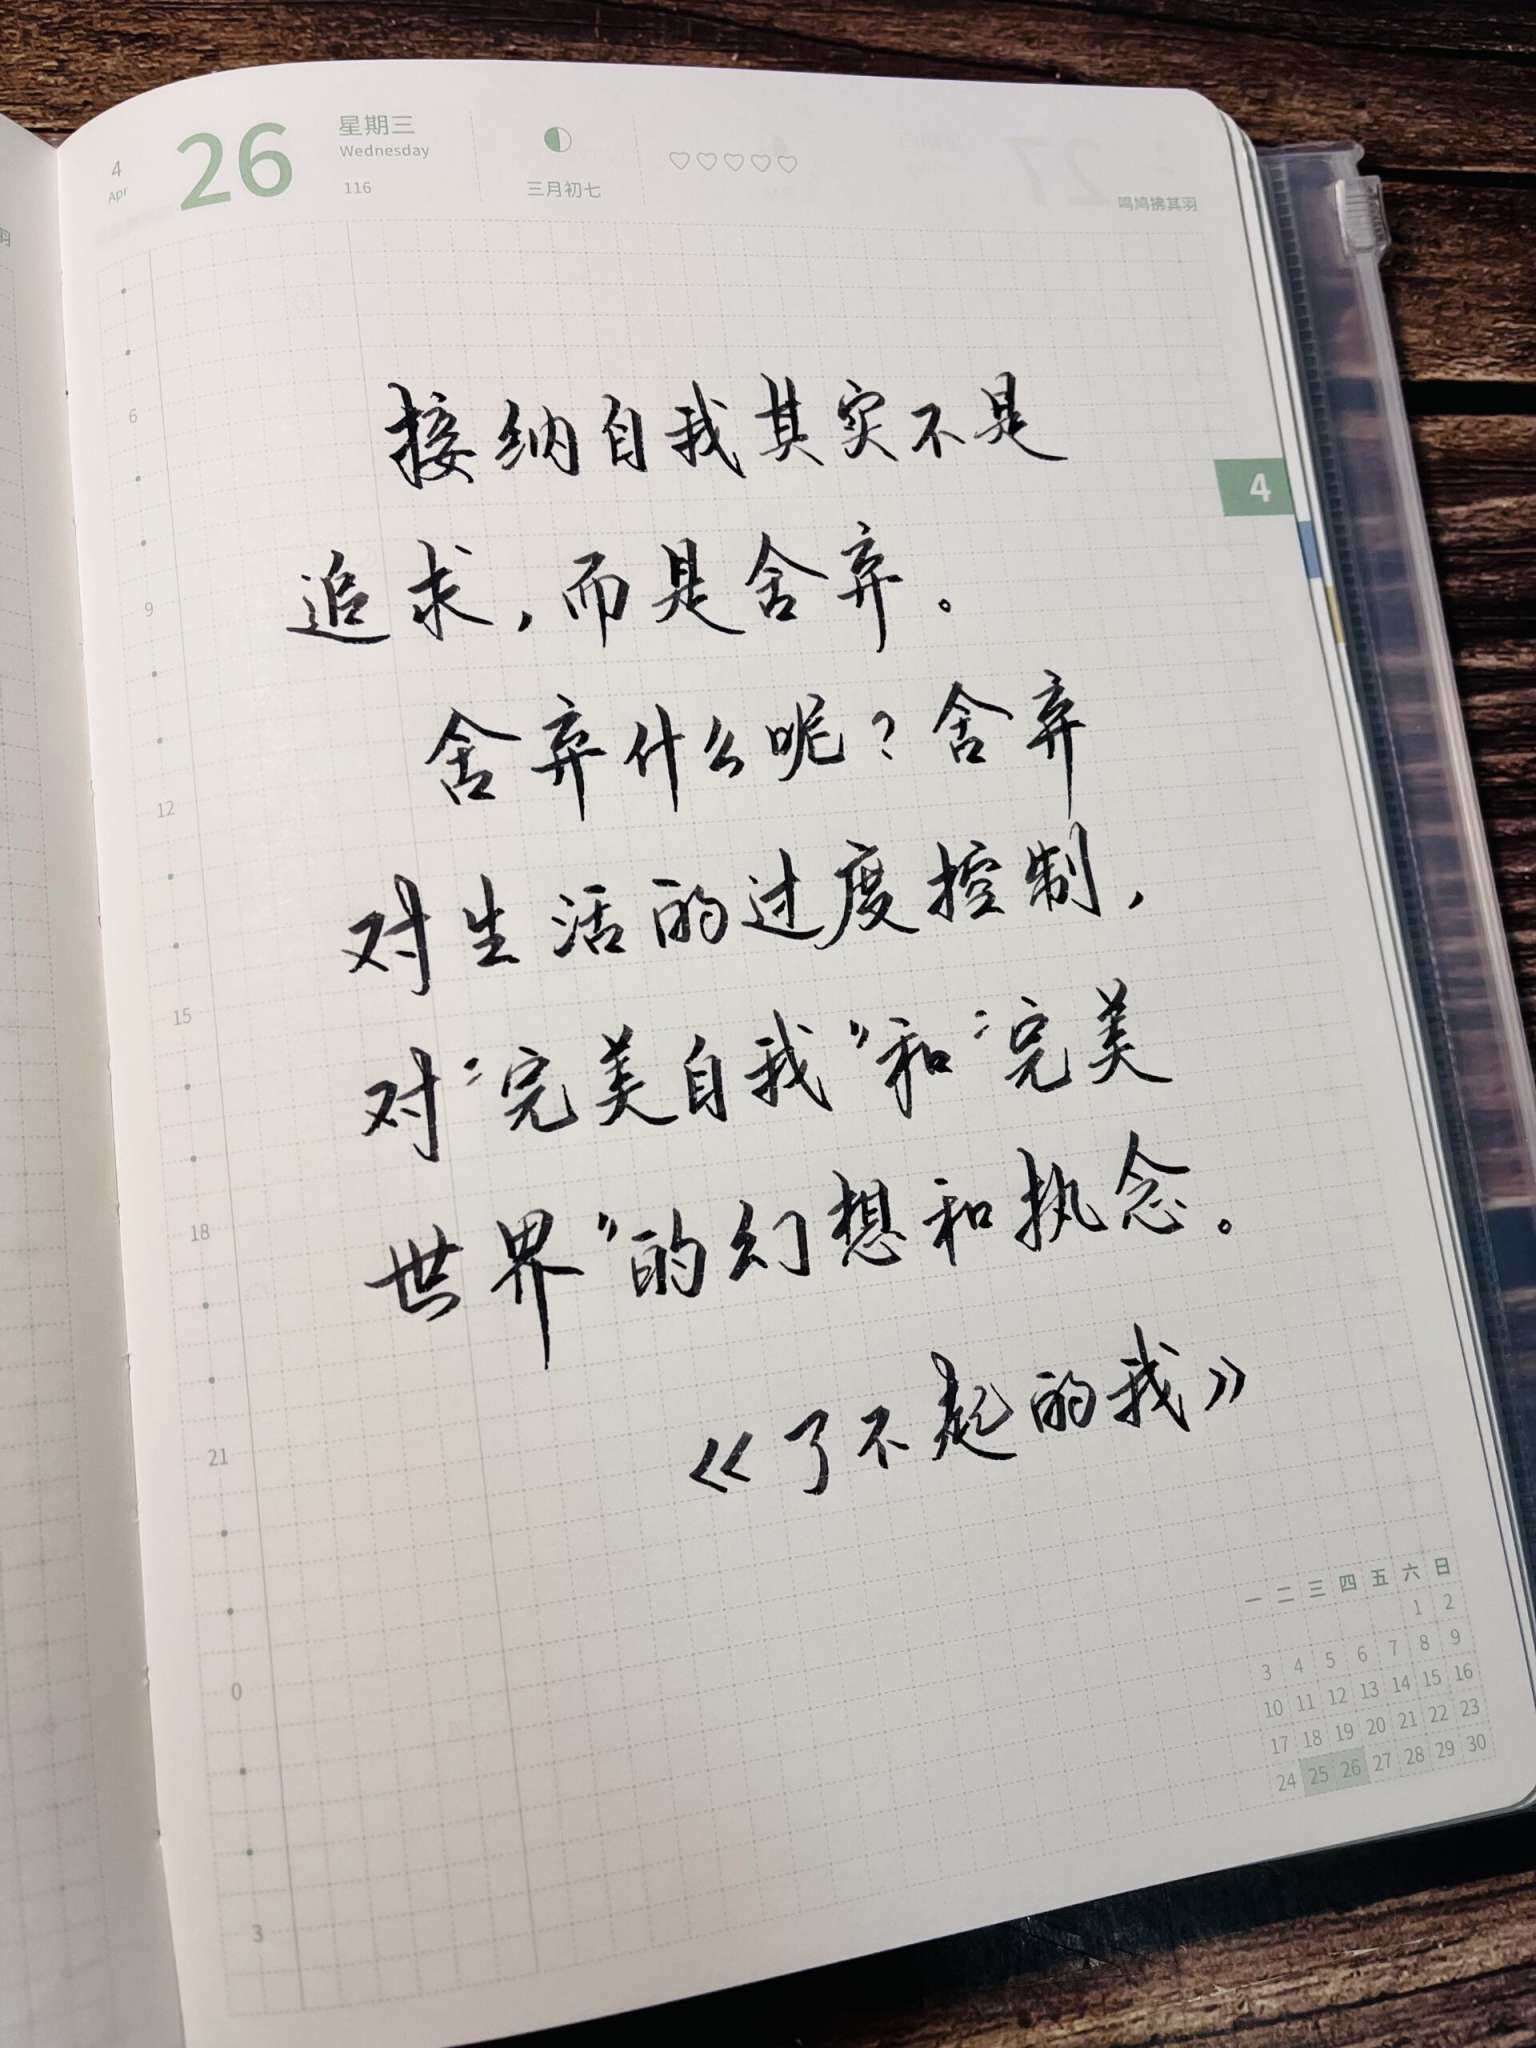 4
Apr
26
星期三
Wednesday
116
三月初七
鸣鸠拂其羽
羽
6
9
12
15
18
21
0
3
4
接纳自我其实不是
追求，而是舍弃。
舍弃什么呢？舍弃
对生活的过度控制，
对“完美自我”和“完美
世界”的幻想和执念。
《了不起的我》
一 二 三 四 五 六 日
1 2
3 4 5 6 7 8 9
10 11 12 13 14 15 16
17 18 19 20 21 22 23
24 25 26 27 28 29 30